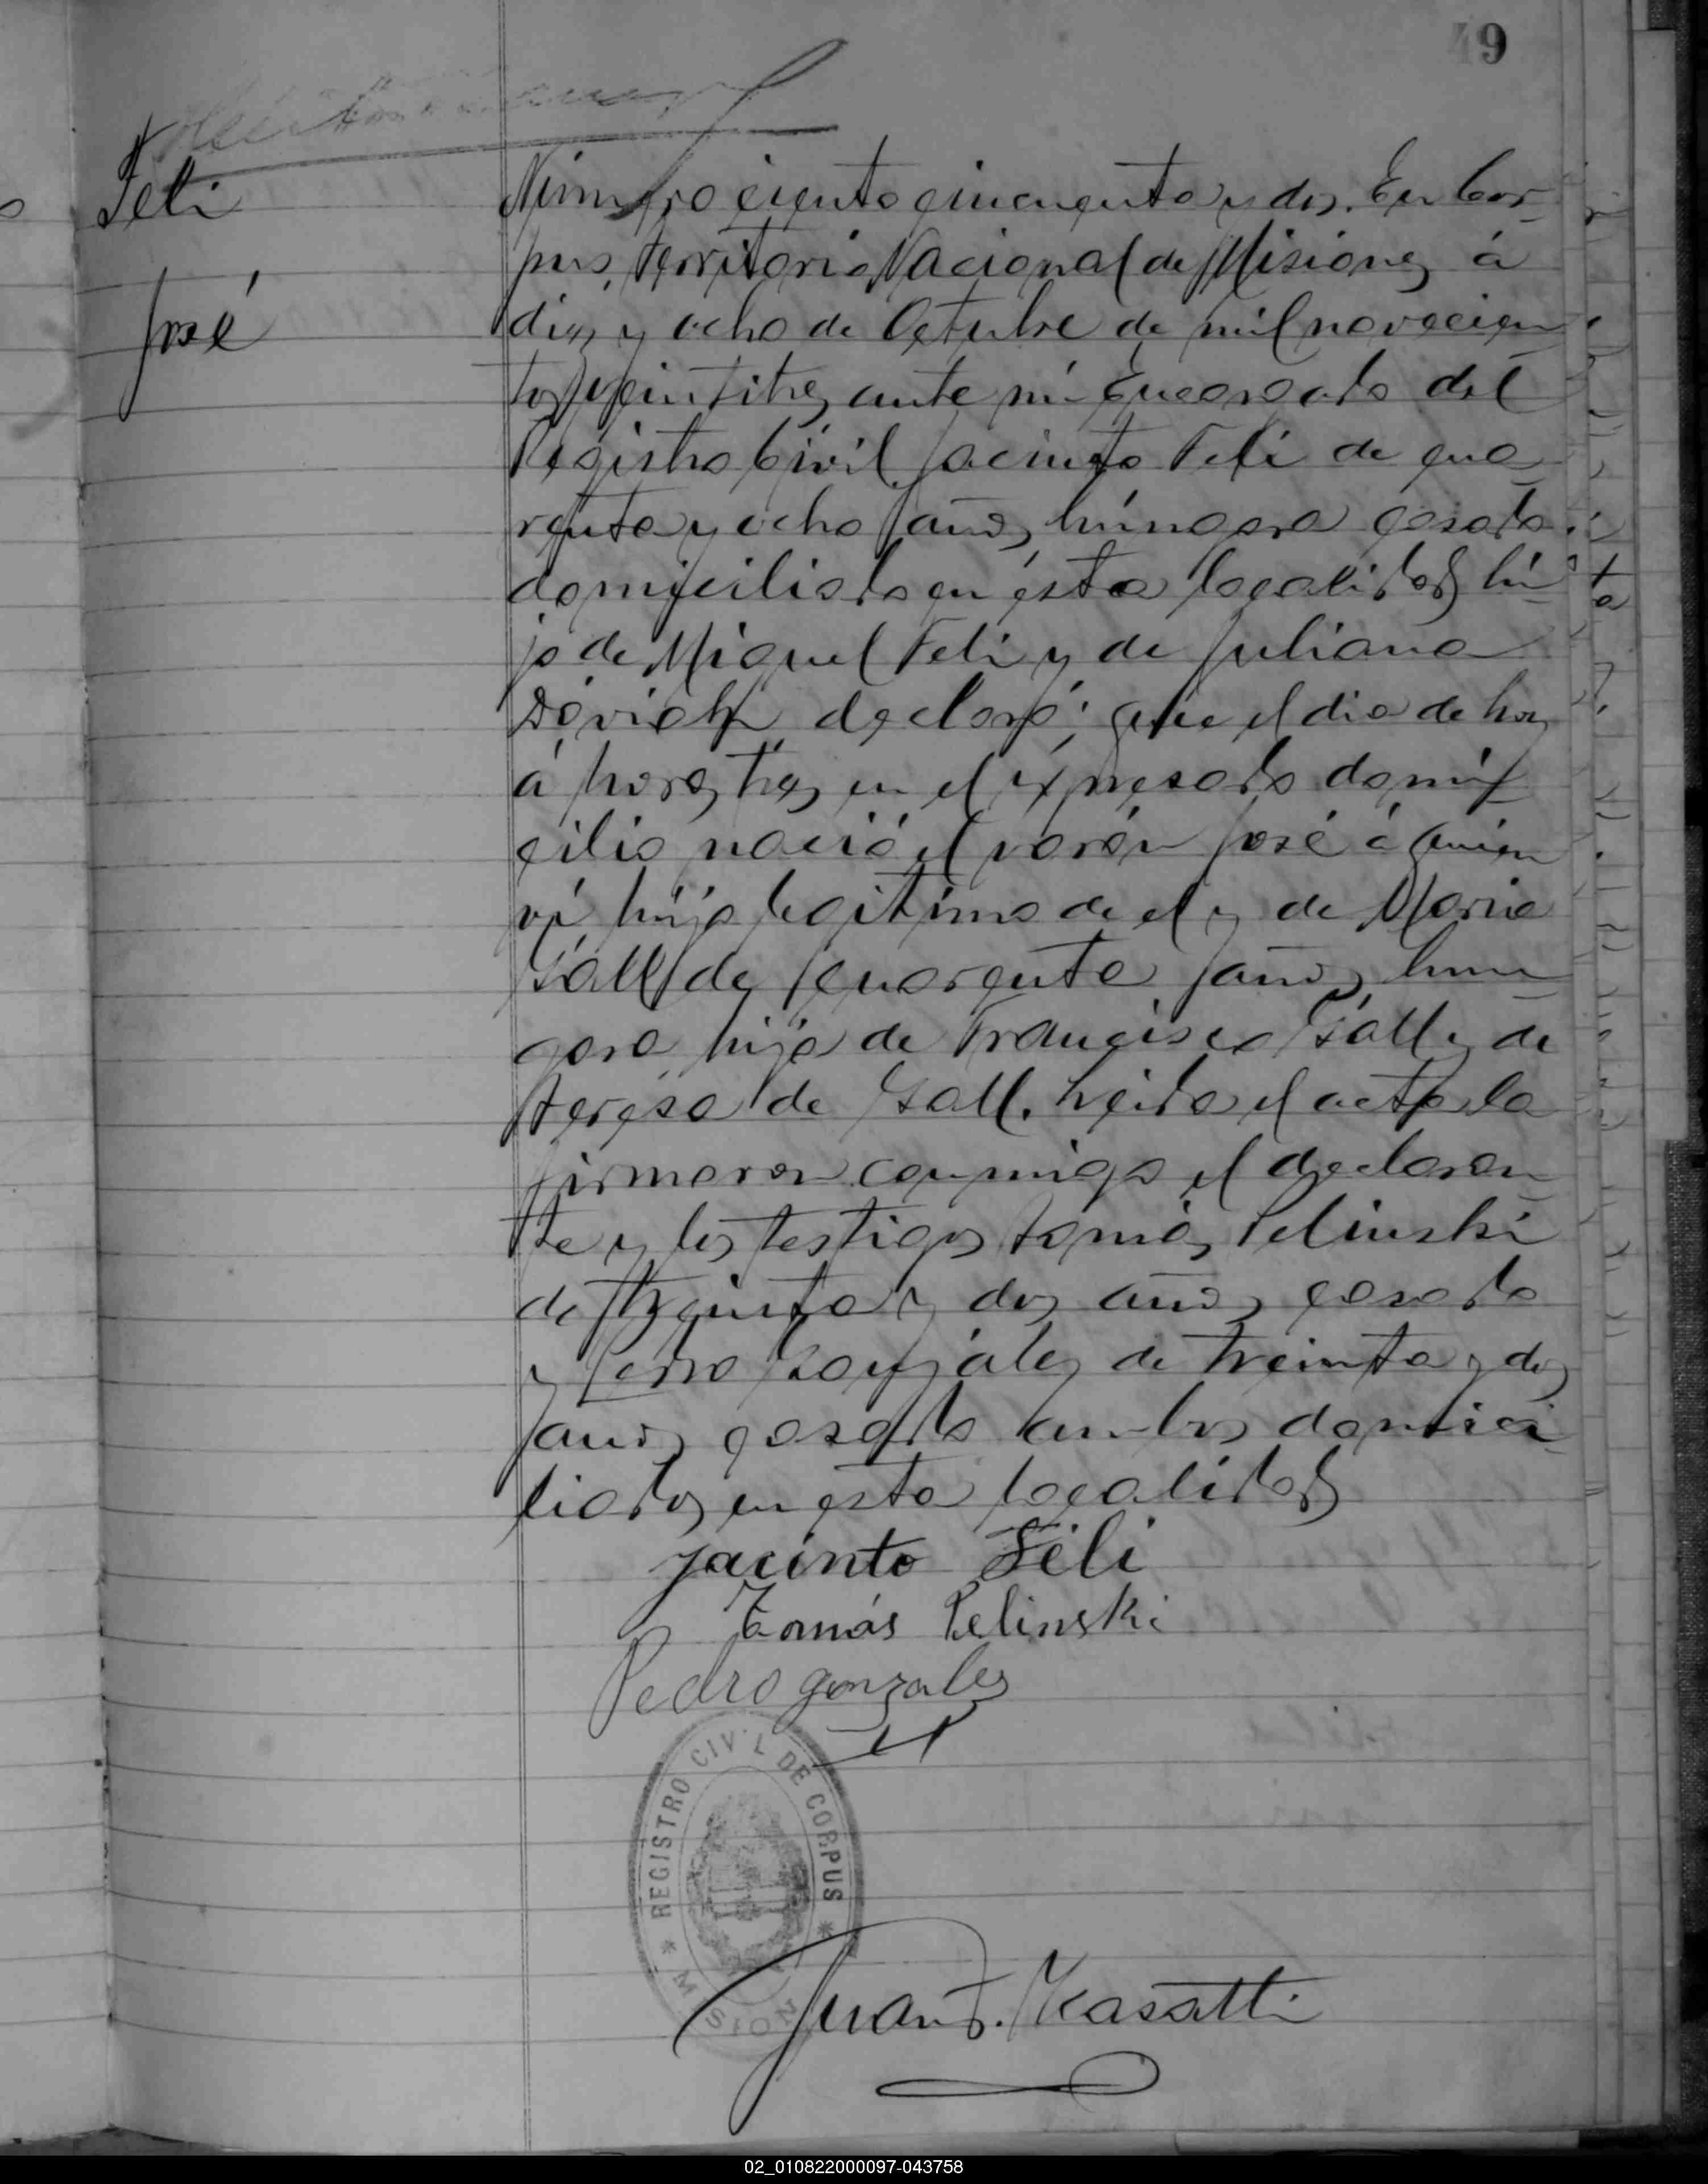 49
Feli
José
Número ciento cincuenta y dos. En Cor-
pus, Territorio Nacional de Misiones á
diez y ocho de Octubre de mil novecien-
tos veintitres ante mi Encargado del
Registro Civil Jacinto Feli de cua-
renta y ocho años, húngaro casado
domiciliado en ésta localidad hi-
jo de Miguel Feli y de Juliana
declaró: que el dia de hoy
á horas tres en el expresado domi-
cilio nació el varón José á quien
ví hijo legitimo de el y de Maria
Gall de cuarenta años, hun-
gara hija de Francisco Gall y de
Teresa de Gall. Leida el acta la
firmaron conmigo el declaran-
te y los testigos Tomás Pelinski
de treinta y dos años, casado
y Pedro Gonzáles de treinta y dos
años casado ambos domici-
liados en esta localidad
Jacinto Féli
Tomás Pelinski
Pedro gonzales
REGISTRO CIVIL DE CORPUS
MISIONES
Juan F. Kasatti
02_010822000097-043758